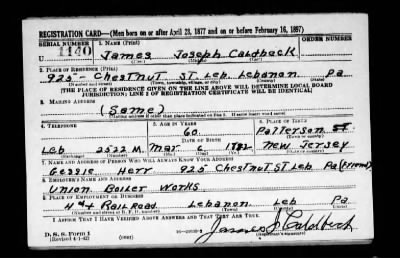 REGISTRATION CARD—(Men born on or after April 28, 1877 and on or before February 16, 1897)
SERIAL NUMBER 1. NAME (Print) ORDER NUMBER
1140 James Joseph Caldbeck
(First) (Middle) (Last)
2. PLACE OF RESIDENCE (Print)
925 - Chestnut ST. Leb. Lebanon Pa
(Number and street) (Town, township, village, or city) (County) (State)
[THE PLACE OF RESIDENCE GIVEN ON THE LINE ABOVE WILL DETERMINE LOCAL BOARD
JURISDICTION; LINE 2 OF REGISTRATION CERTIFICATE WILL BE IDENTICAL]
3. MAILING ADDRESS
(Same)
[Mailing address if other than place indicated on line 2. If same insert word same]
4. TELEPHONE 5. AGE IN YEARS 6. PLACE OF BIRTH
60 Patterson
DATE OF BIRTH (Town or county)
Leb 2522 M. Mar 6 1882 New Jersey
(Exchange) (Number) (Mo.) (Day) (Yr.) (State or country)
7. NAME AND ADDRESS OF PERSON WHO WILL ALWAYS KNOW YOUR ADDRESS
Gessie Herr 925 Chestnut ST Leb Pa (friend)
8. EMPLOYER'S NAME AND ADDRESS
Union Boiler Works
9. PLACE OF EMPLOYMENT OR BUSINESS
4 th + Railroad Lebanon Leb Pa.
(Number and street or R. F. D. number) (Town) (County) (State)
I AFFIRM THAT I HAVE VERIFIED ABOVE ANSWERS AND THAT THEY ARE TRUE.
D. S. S. Form 1
(Revised 4-1-42) (over) James J. Caldbeck
(Registrant's signature)